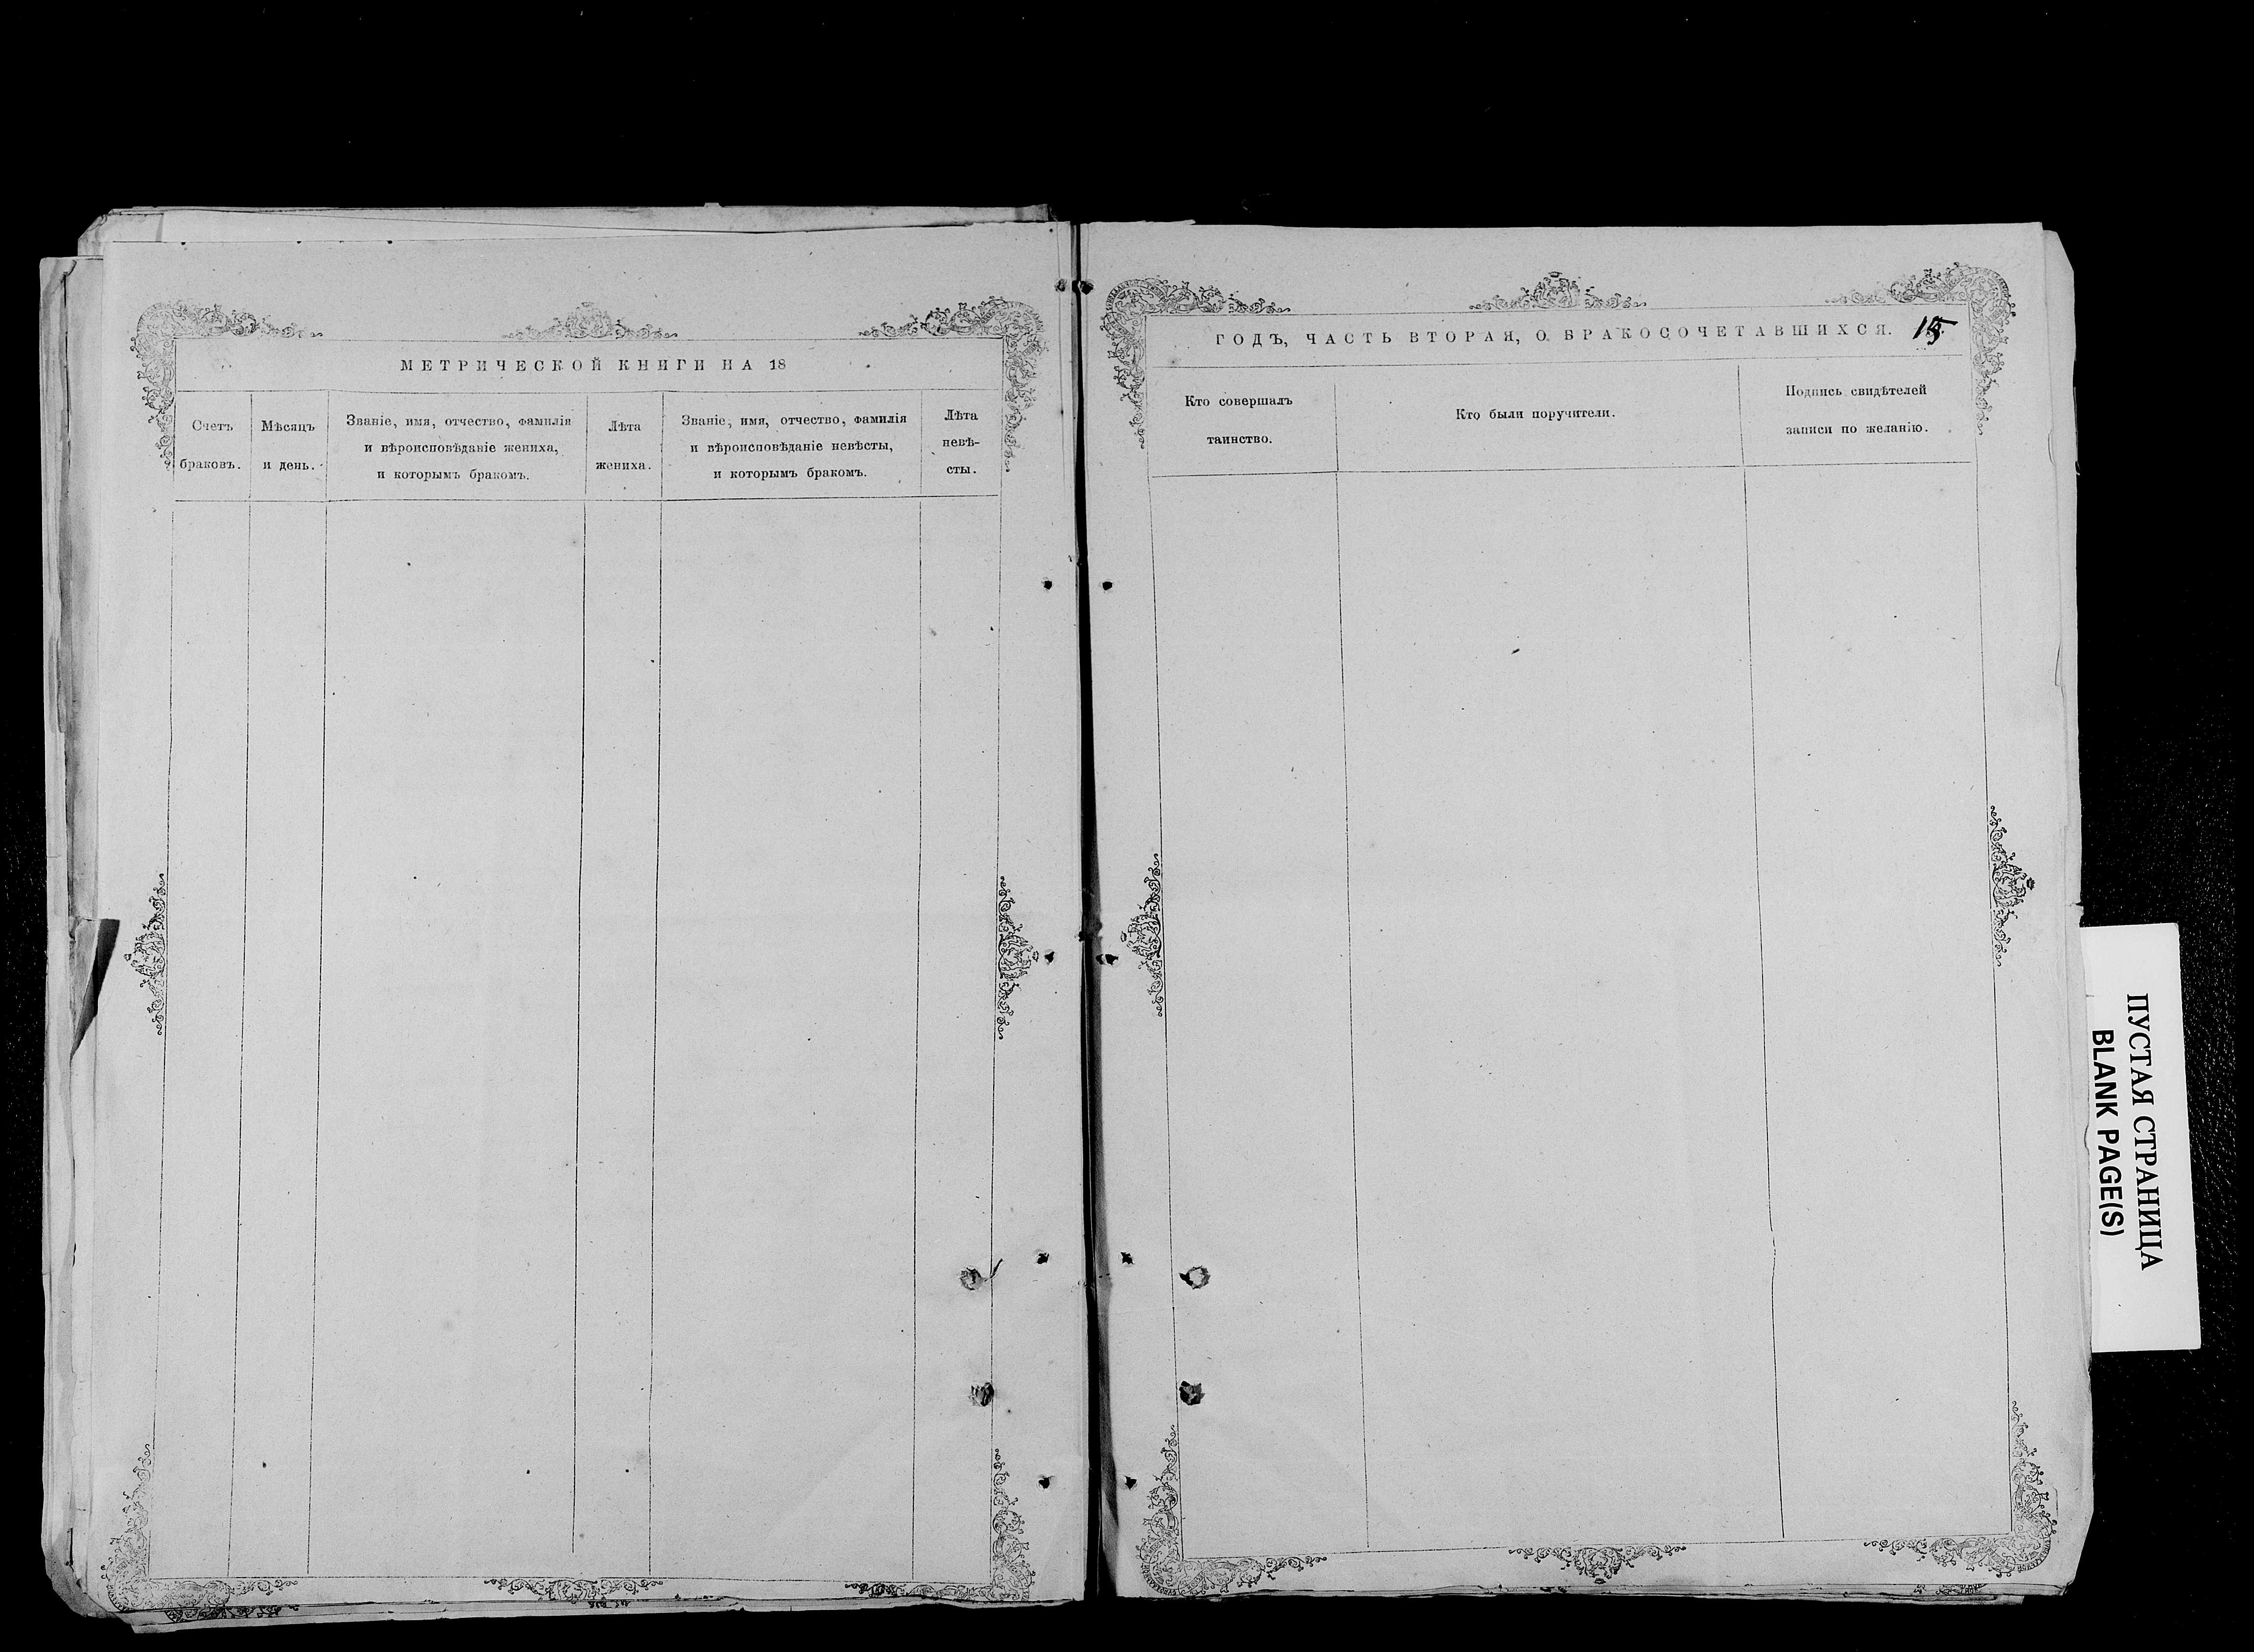 МЕТРИЧЕСКОЙ КНИГИ НА 18
Счетъ
браковъ.
Мѣсяцъ
и день.
Званіе, имя, отчество, фамилія
и вѣроисповѣданіе жениха,
и которымъ бракомъ.
Лѣта
жениха.
Званіе, имя, отчество, фамилія
и вѣроисповѣданіе невѣсты,
и которымъ бракомъ.
Лѣта
невѣ-
сты.
ГОДЪ, ЧАСТЬ ВТОРАЯ, О БРАКОСОЧЕТАВШИХСЯ.
Кто совершалъ
таинство.
Кто были поручители.
Подпись свидѣтелей
записи по желанію.
ПУСТАЯ СТРАНИЦА
BLANK PAGE(S)